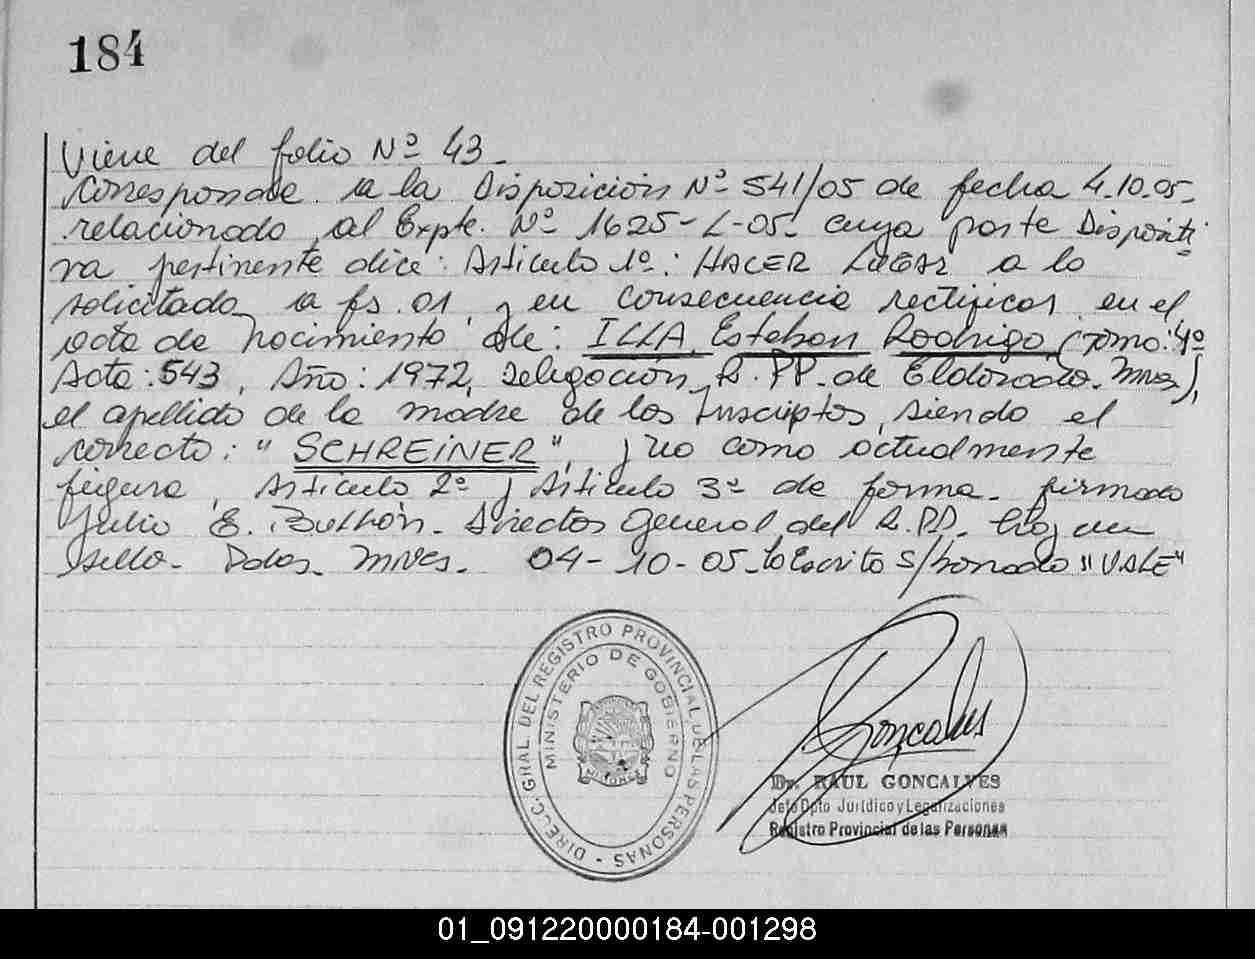 184
Viene del folio Nº 43.
Corresponde a la Disposición Nº 541/05 de fecha 4.10.05.
relacionado al Expte. Nº 1625-L-05. cuya parte Dispositi
va pertinente dice: Artículo 1º: HACER LUGAR a lo
solicitado a fs. 01 y en consecuencia rectificar en el
acta de nacimiento de: ILLA, Esteban Rodrigo, (Tomo: 4º
Acta: 543, Año: 1972, Delegación R.PP. de Eldorado. Mnes),
el apellido de la madre de los Inscriptos, siendo el
correcto: "SCHREINER", y no como actualmente
figura, Artículo 2º y Artículo 3º de forma. firmado
Julio E. Director General del R.PP. Hay un
sello. Pdas. Mnes. 04-10-05. lo Escrito s/borrado "VALE"
DIREC. GRAL. DEL REGISTRO PROVINCIAL DE LAS PERSONAS -
MINISTERIO DE GOBIERNO
MISIONES
Goncalves
Dr. RAUL GONCALVES
Jefe Dpto Jurídico y Legalizaciones
Registro Provincial de las Personas
01_091220000184-001298